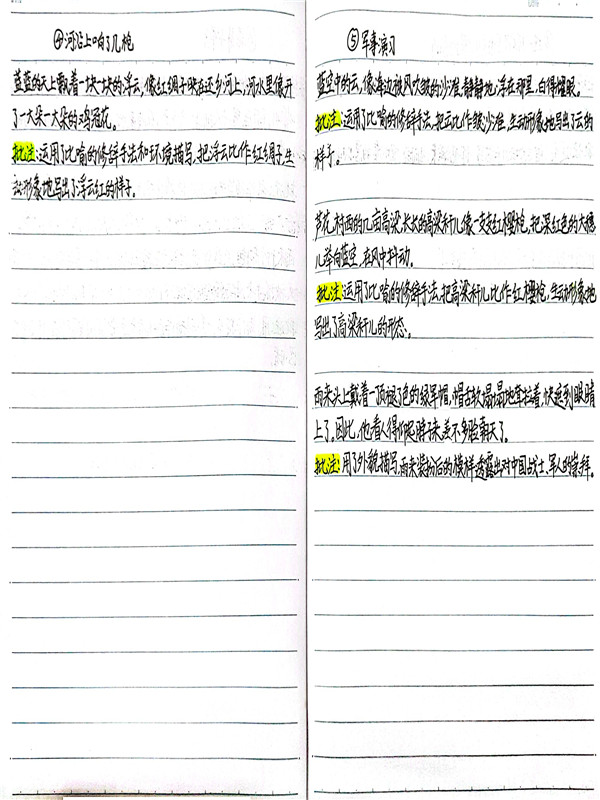 ④河沿上响了几枪
蓝蓝的天上飘着一块一块的浮云,像红绸子映在还乡河上,河水里像开
了一大朵一大朵的鸡冠花。
批注:运用了比喻的修辞手法和环境描写,把浮云比作红绸子,生
动形象地写出了浮云红的样子。
⑤军事演习
蓝空中的云,像海边被风吹皱的沙滩,静静地浮在那里,白得耀眼。
批注:运用了比喻的修辞手法,把云比作皱沙滩,生动形象地写出了云的
样子。
芦花村西的几亩高粱,长长的高粱秆儿像一支支红樱枪,把深红色的大穗
儿举向蓝空,在风中抖动。
批注:运用了比喻的修辞手法,把高粱秆儿比作红樱枪,生动形象地
写出了高粱秆儿的形态。
雨来头上戴着一顶褪了色的绿军帽,帽舌软塌塌地耷拉着,快遮到眼睛
上了。因此,他看人得仰起脖子来,差不多脸朝天了。
批注:用了外貌描写,雨来装扮后的模样透露出对中国战士、军人的崇拜。